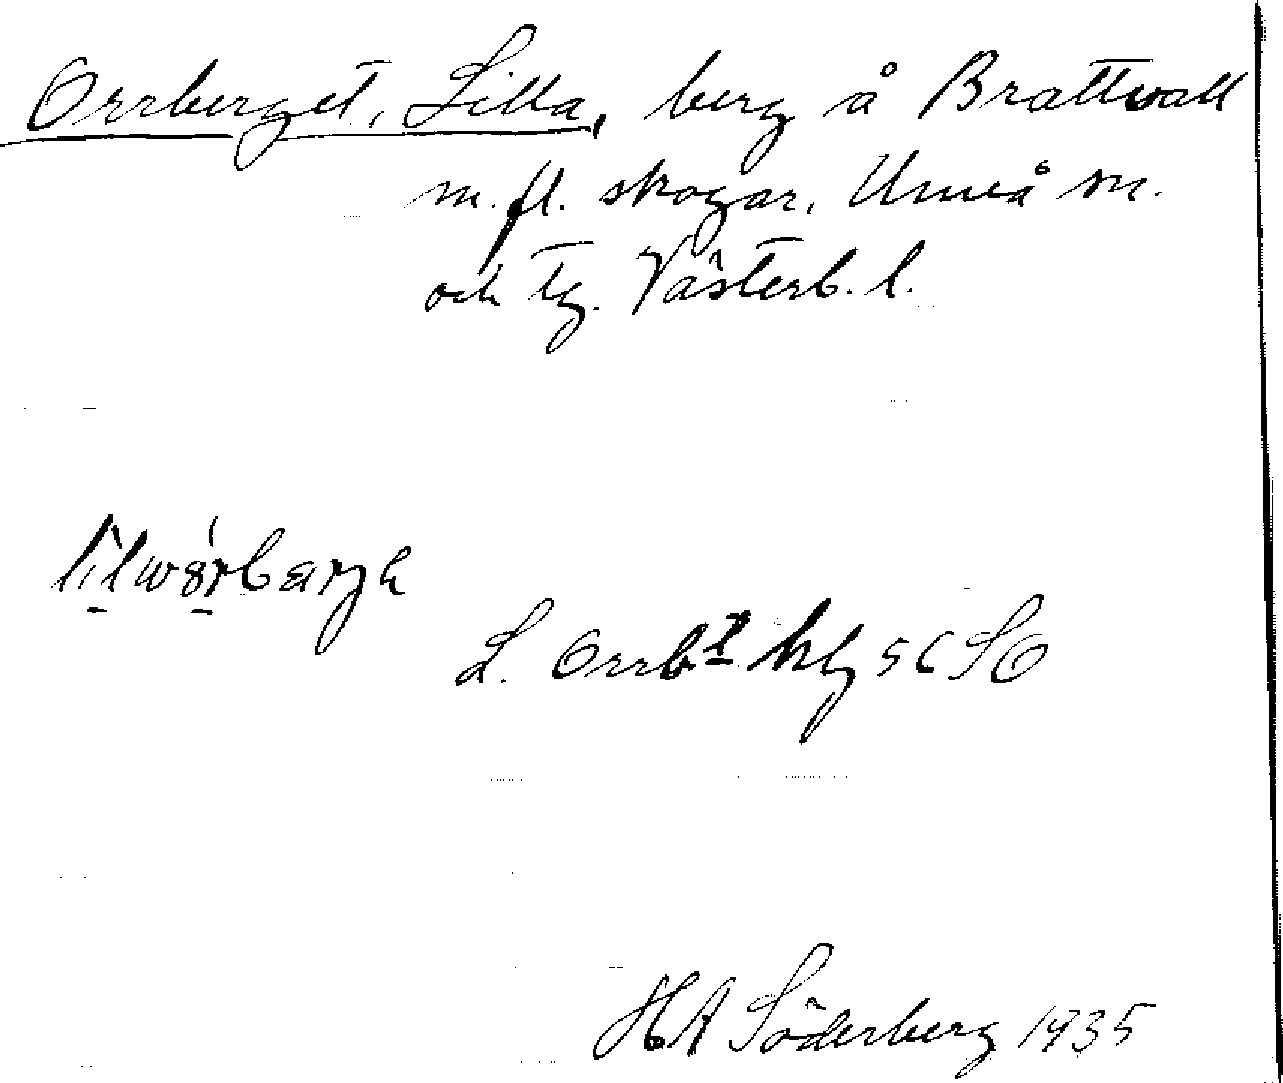 Orrberget, Lilla, berg å Brattvall
m.fl. skogar, Umeå sn.
och tg. Västerb. l.
L. Orrbt hlg 56 SO
HA Söderberg 1935